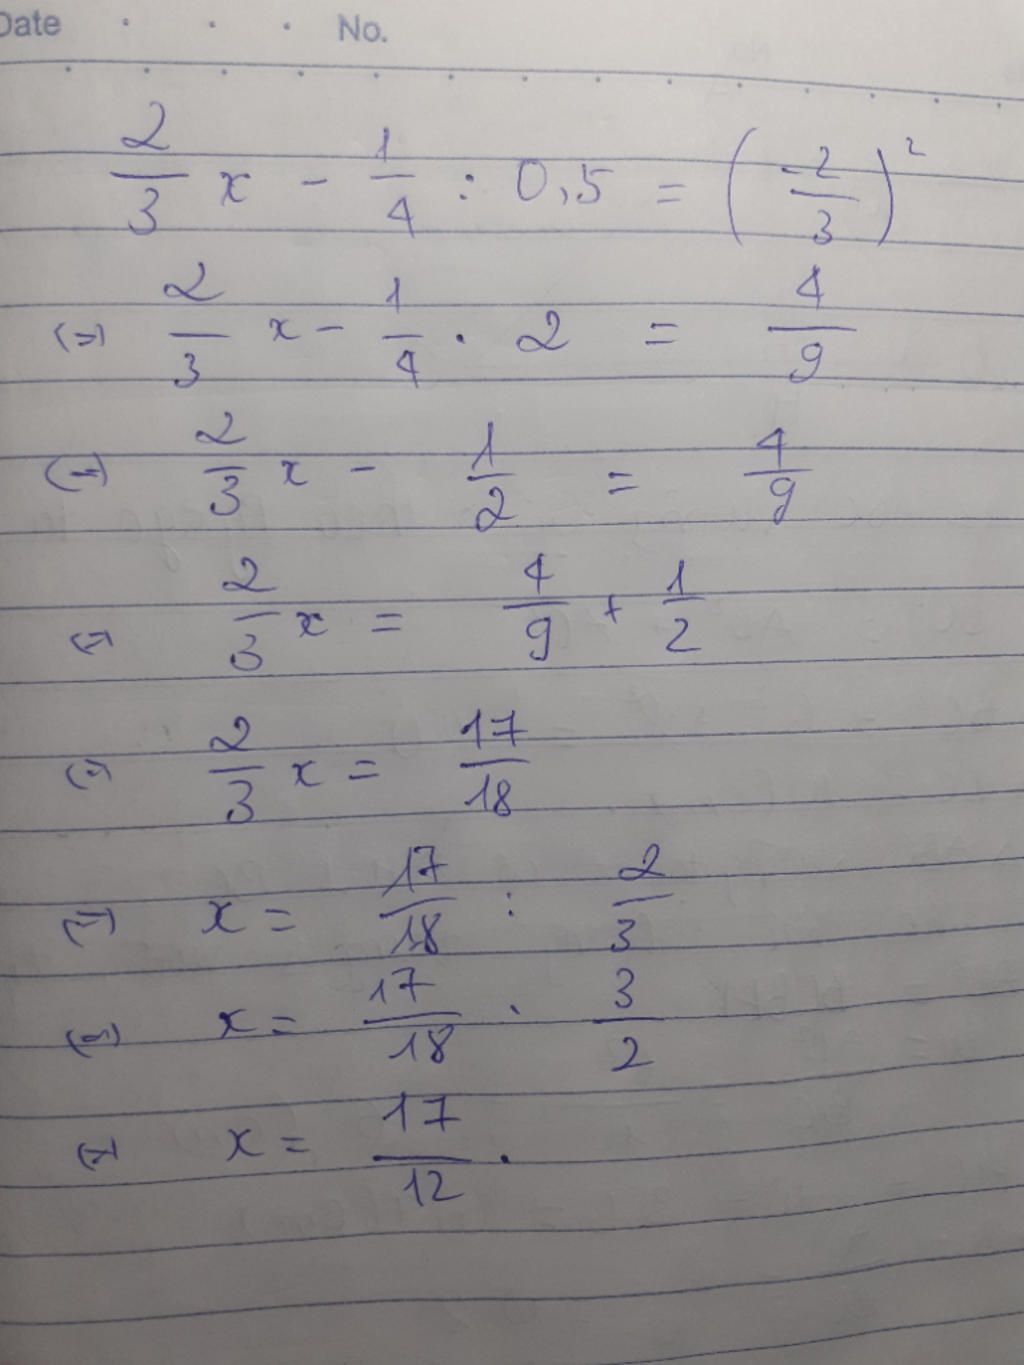 Date No.
2/3 x - 1/4 : 0,5 = (-2/3)²
(=) 2/3 x - 1/4 . 2 = 4/9
(=) 2/3 x - 1/2 = 4/9
(=) 2/3 x = 4/9 + 1/2
(=) 2/3 x = 17/18
(=) x = 17/18 : 2/3
(=) x = 17/18 . 3/2
(=) x = 17/12 .